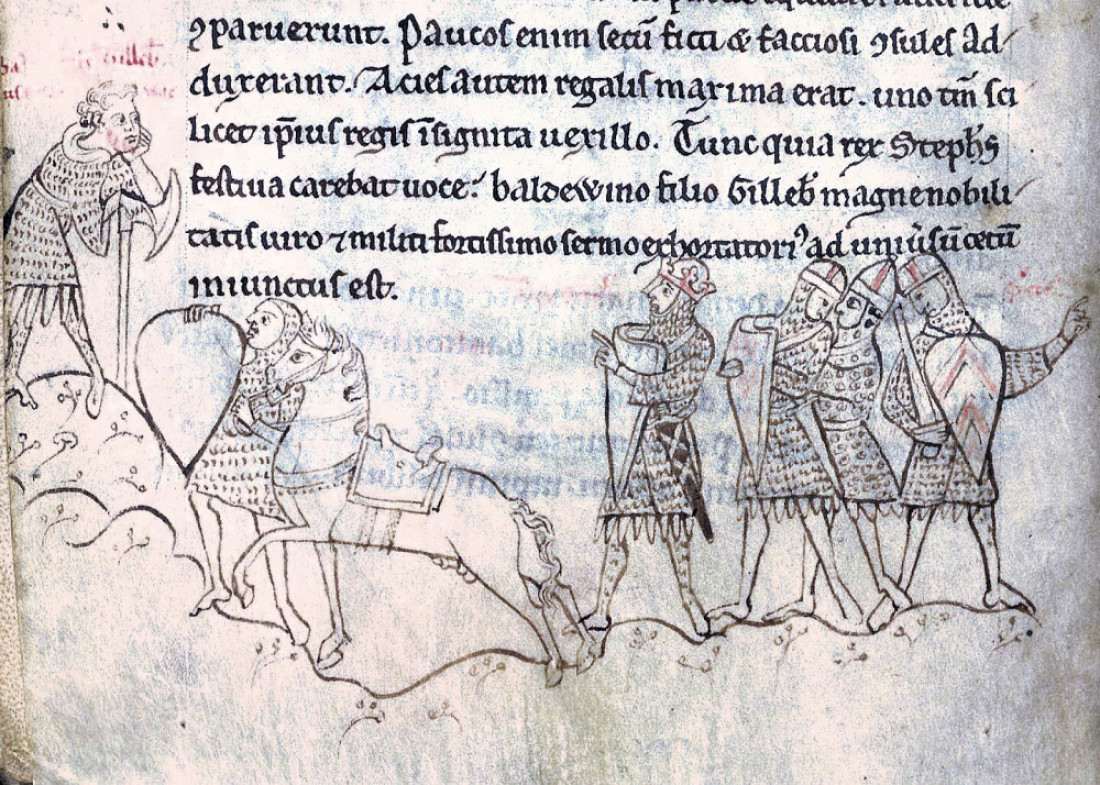 ꝯparuerunt. Paucos enim secū ficti & facciosi ꝯsules ad
duxerant. Acies autem regalis maxima erat. uno tm̄ sci
licet ip̄ius regis īsignita uexillo. Tunc quia rex Steph̄s
festiua carebat uoce: baldewino filio Gilleb̄ magne nobili
tatis uiro ⁊ militi fortissimo sermo exhortatoriꝰ ad
iniunctus est.